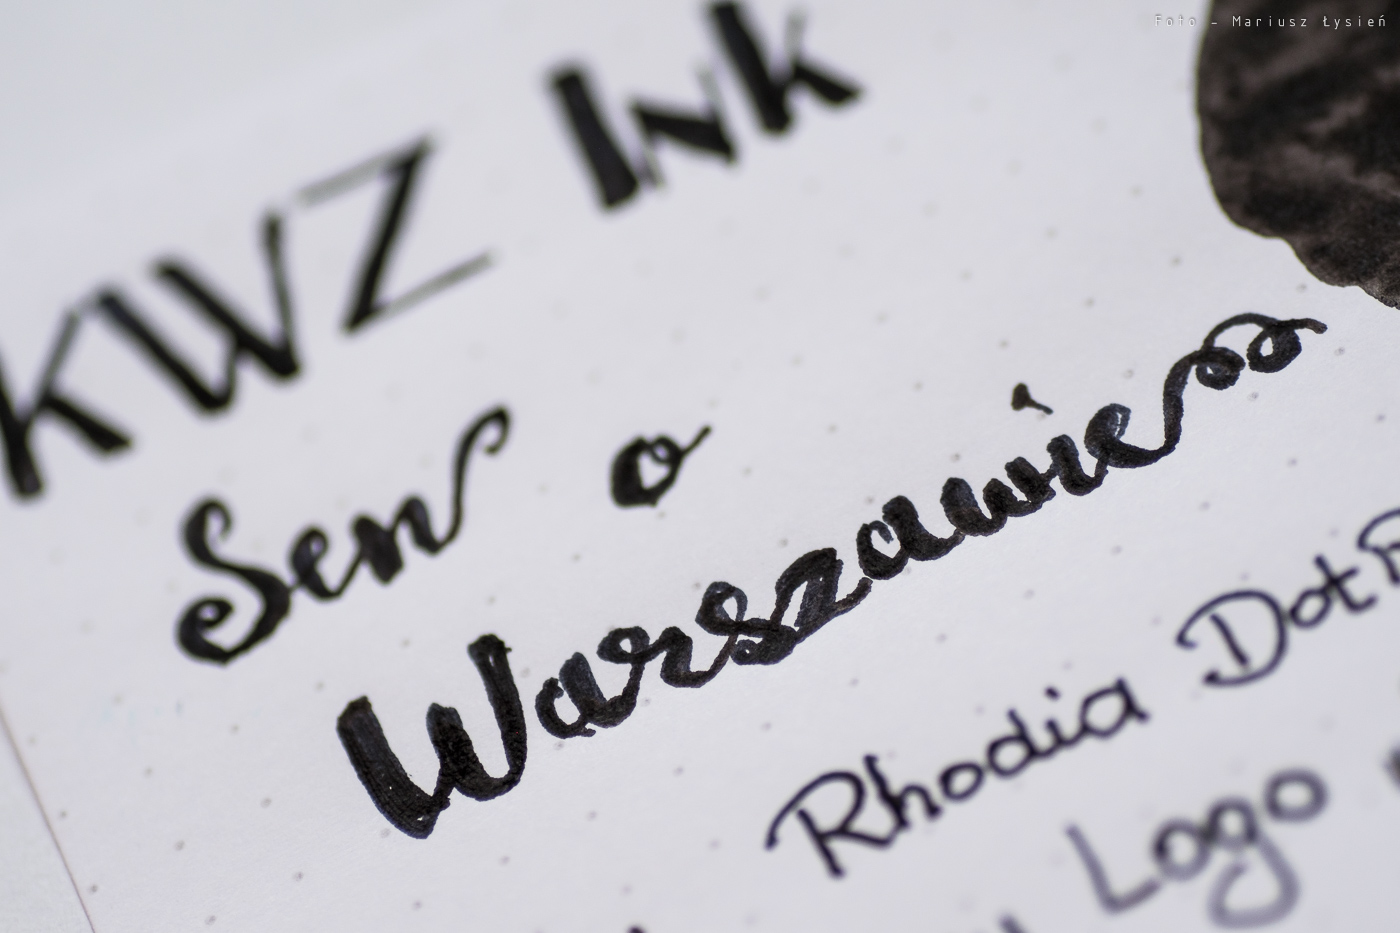 Foto - Mariusz Łysień
KWZ Ink
Sen o
Warszawie
Rhodia Dot
Logo